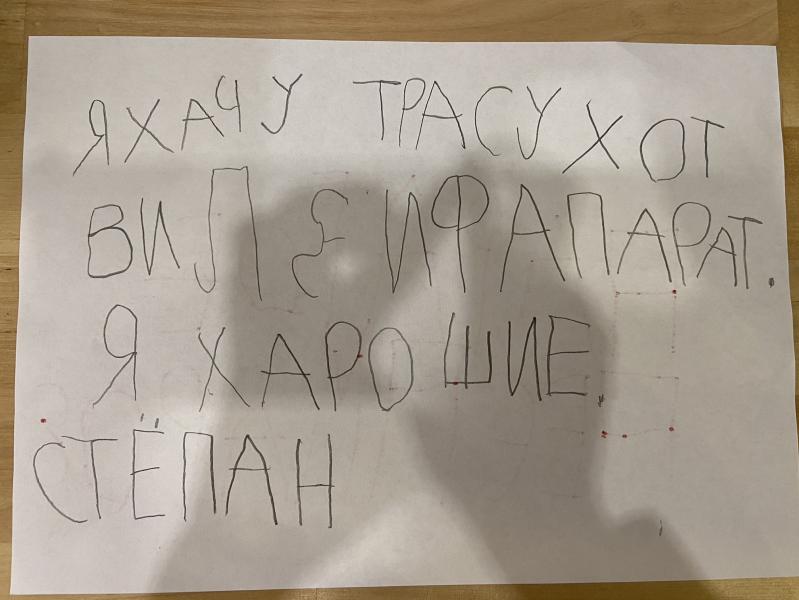 Я ХАЧУ ТРАСУ ХОТ
ВИЛЗ И ФАПАРАТ.
Я ХАРОШИЕ.
СТЁПАН